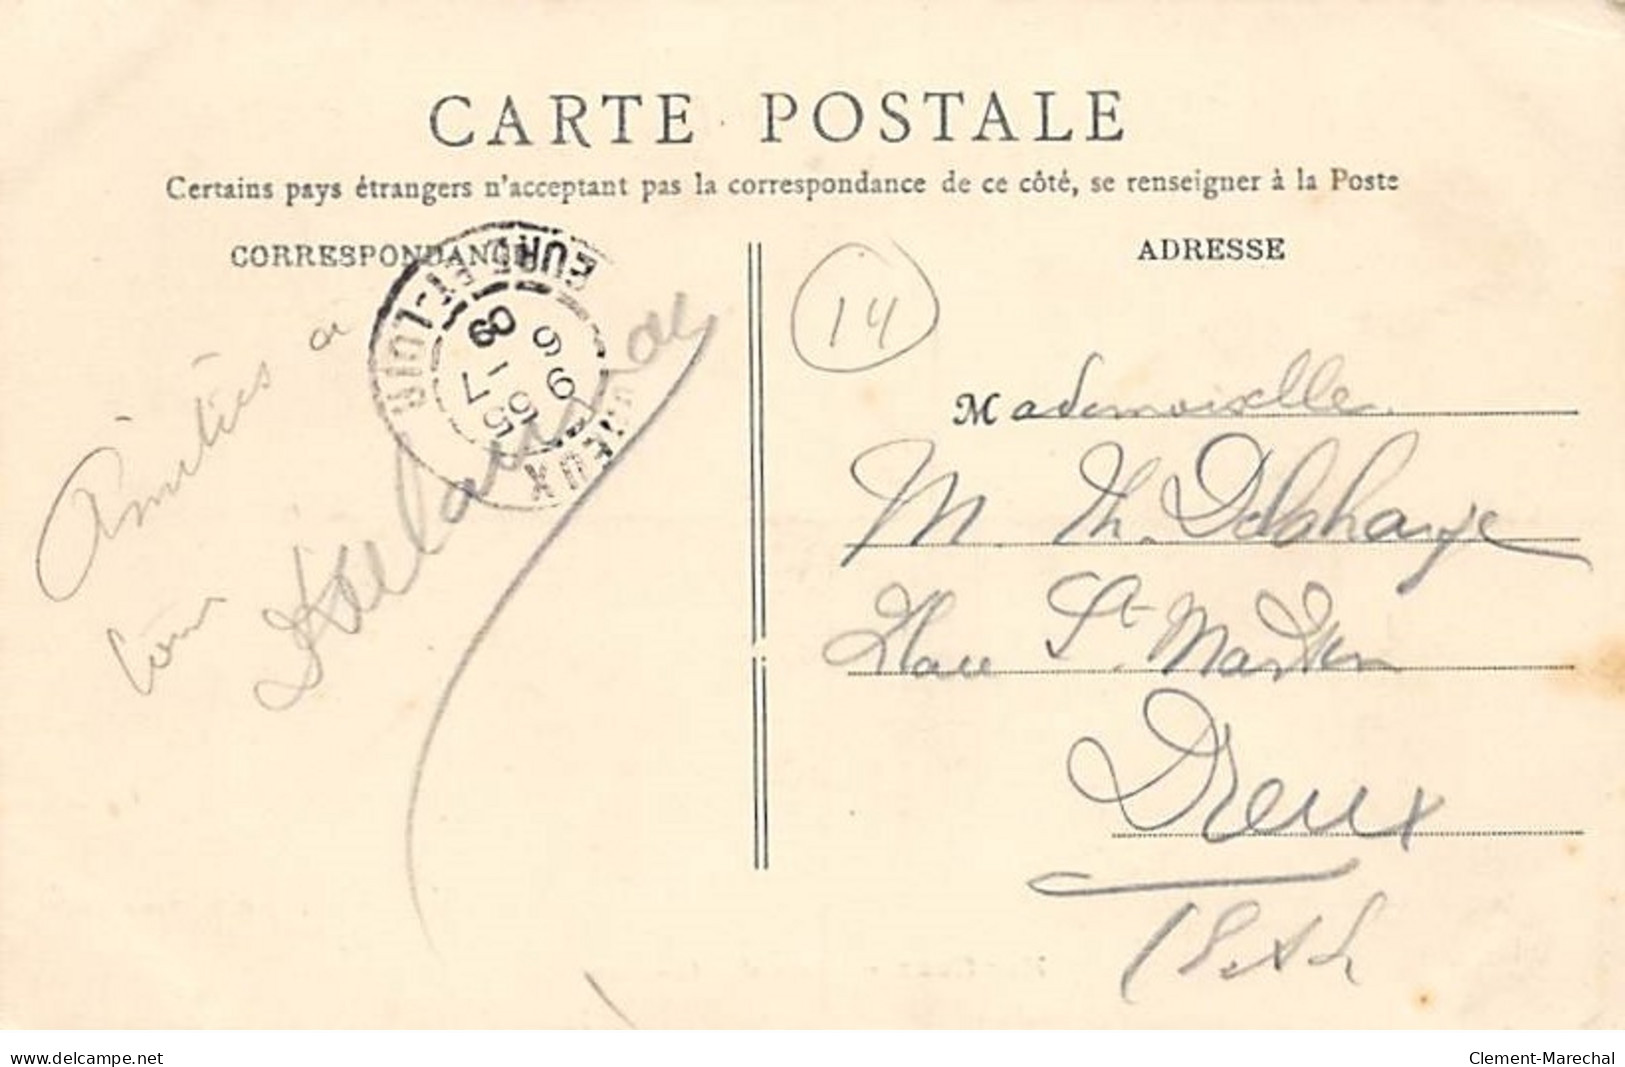 CARTE POSTALE
Certains pays étrangers n'acceptant pas la correspondance de ce côté, se renseigner à la Poste
CORRESPONDANCE
ADRESSE
14
Amitiés à
tous
DREUX
EURE-ET-LOIR
Mademoiselle
M. Th. Delahaye
Place St Martin
Dreux
(E. & L.
www.delcampe.net
Clement-Marechal